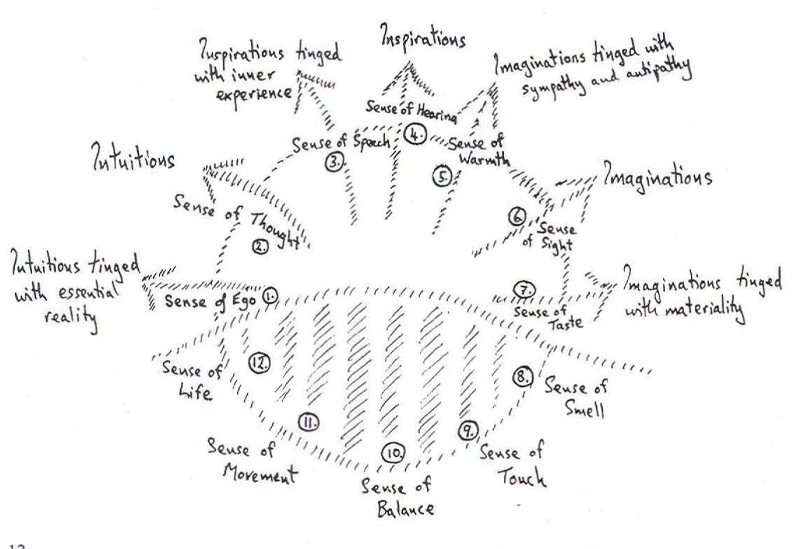 Inspirations tinged
with inner
experience
Inspirations
Imaginations tinged with
sympathy and antipathy
Sense of Hearing
4.
Sense of Speech
3.
Sense of
Warmth
5.
Intuitions
Sense of Thought
2.
Imaginations
6
Sense
of Sight
Intuitions tinged
with essential
reality
Sense of Ego
1.
7.
Sense of
Taste
Imaginations tinged
with materiality
12.
Sense of
Life
8.
Sense of
Smell
11.
Sense of
Movement
10.
Sense of
Balance
9.
Sense of
Touch